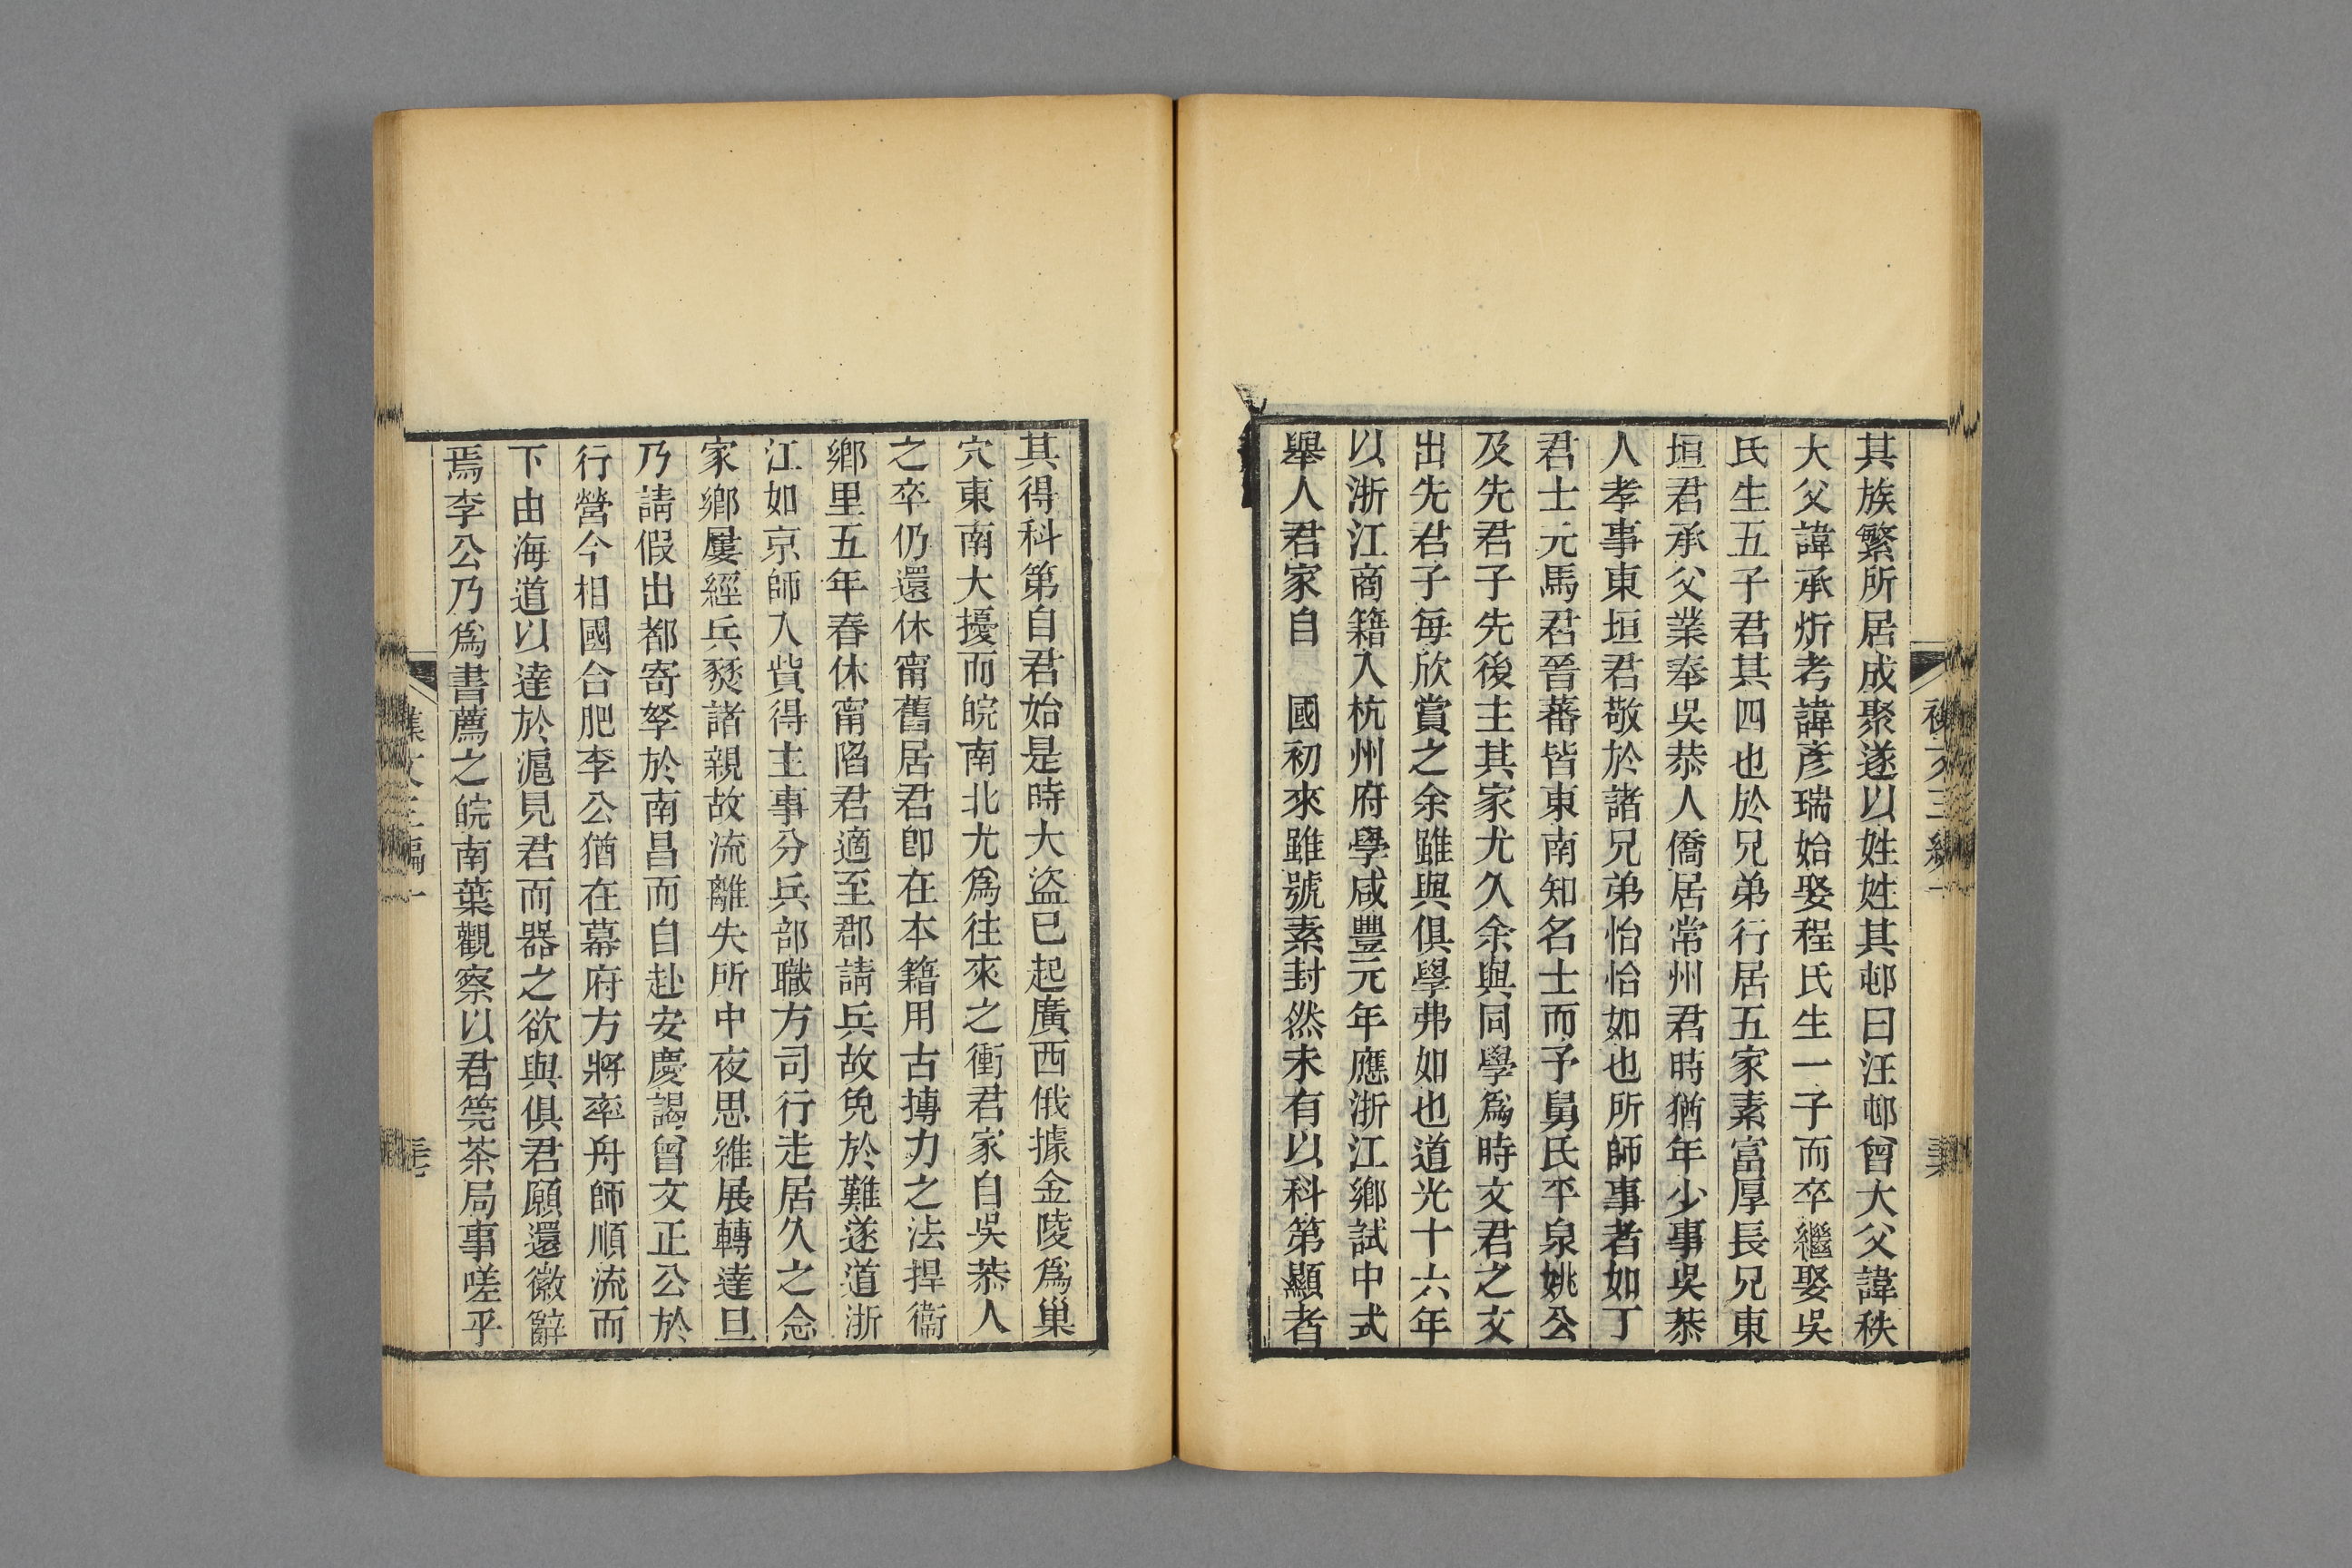 其族繁所居成聚遂以姓姓其邨曰汪邨曾大父諱秩
大父諱承炘考諱彥瑞始娶程氏生一子而卒繼娶吳
氏生五子君其四也於兄弟行居五家素富厚長兄東
垣君承父業奉吳恭人僑居常州君時猶年少事吳恭
人孝事東垣君敬於諸兄弟怡怡如也所師事者如丁
君士元馬君晉蕃皆東南知名士而予舅氏平泉姚公
及先君子先後主其家尤久余與同學爲時文君之文
出先君子每欣賞之余雖與俱學弗如也道光十六年
以浙江商籍入杭州府學咸豐元年應浙江鄉試中式
舉人君家自　國初來雖號素封然未有以科第顯者
其得科第自君始是時大盜已起廣西俄據金陵爲巢
穴東南大擾而皖南北尤爲往來之衝君家自吳恭人
之卒仍還休甯舊居君卽在本籍用古摶力之法捍衞
鄉里五年春休甯陷君適至郡請兵故免於難遂道浙
江如京師入貲得主事分兵部職方司行走居久之念
家鄉屢經兵燹諸親故流離失所中夜思維展轉達旦
乃請假出都寄孥於南昌而自赴安慶謁曾文正公於
行營今相國合肥李公猶在幕府方將率舟師順流而
下由海道以達於滬見君而器之欲與俱君願還徽辭
焉李公乃爲書薦之皖南葉觀察以君筦茶局事嗟乎